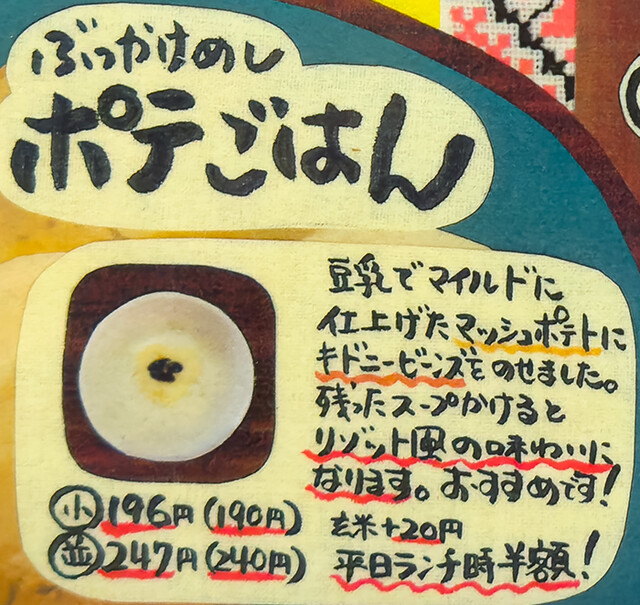 ぶっかけめし
ポテごはん
豆乳でマイルドに
仕上げたマッシュポテトに
キドニービーンズをのせました。
残ったスープかけると
リゾット風の味わいに
なります。おすすめです!
小 196円(190円)
並 247円(240円)
玄米+20円
平日ランチ時半額!